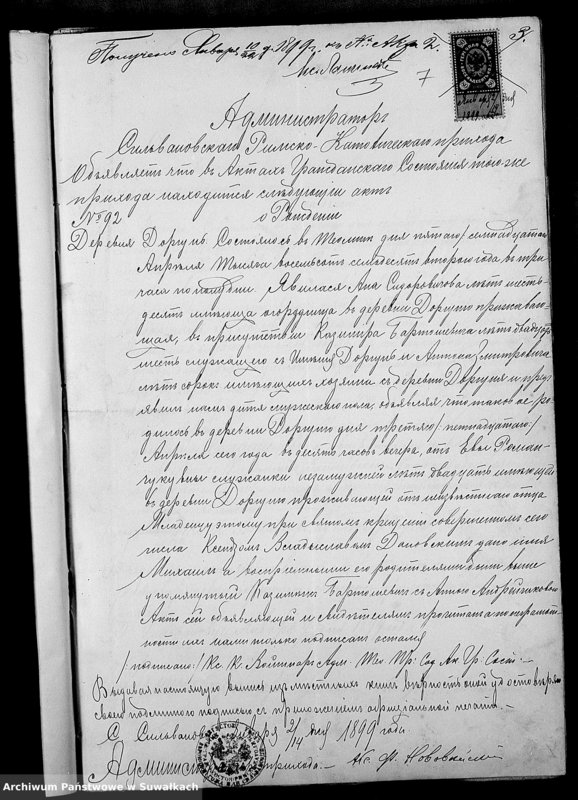 Получено Января 10/22 д. 1899 г. къ №
3.
7
Января 2/14 дня
1899
Администраторъ
Сильвановскаго Римско-Католическаго прихода
Объявляетъ что въ Актахъ Гражданскаго Состоянія того-же
прихода находится слѣдующій актъ
№ 92 о Рожденіи
Деревня Доргунь. Состоялось въ дня пятаго /семнадцатаго/
Апрѣля Тысяча восемьсотъ семьдесятъ втораго года въ три
часа по полудни. Явилася Ана Сидоровичова лѣтъ шесть-
десятъ имѣюща огородница въ деревни Доргунь проживаю-
щая, въ присутствіи Казимира Бартошевича лѣтъ двадцать
шесть служащаго съ Имѣнія Доргунь и Антона Змитровича
лѣтъ сорокъ имѣющихъ хозяина съ деревни Доргуня и пред-
явили намъ дитя мужескаго пола, объявляя что таковое ро-
дилось въ деревни Доргунь дня третяго /пятнадцатаго/
Апрѣля сего года въ десять часовъ вечера, отъ Евы Роман-
чукувны служанки незамужней лѣтъ двадцать имѣющей
въ деревни Доргунь проживающей отъ неизвѣстнаго отца
Младенцу этому при святомъ крещеніи совершенномъ сего
числа Ксендзомъ Владиславомъ дано имя
Михаилъ а воспріемными его родителями были выше
упомянутый Казимиръ Бартошевичъ съ Анною Андрейчиковою
Актъ сей объявляющей и свидѣтелямъ прочитанъ по неграмот-
ности ихъ нами только подписанъ остался
/подписалъ/ Кс. К. Адм. Пр. Сод. Ак. Гр. Сост. -
Выдавая настоящую выпись изъ мѣстныхъ книгъ вѣрность оной удостовѣряю
своей подлинной подписью съ приложеніемъ офиціальной печати. -
С. Сильвановцы Января 2/14 дня 1899 года.
Администраторъ прихода. - Кс. Ф.
Archiwum Państwowe w Suwałkach